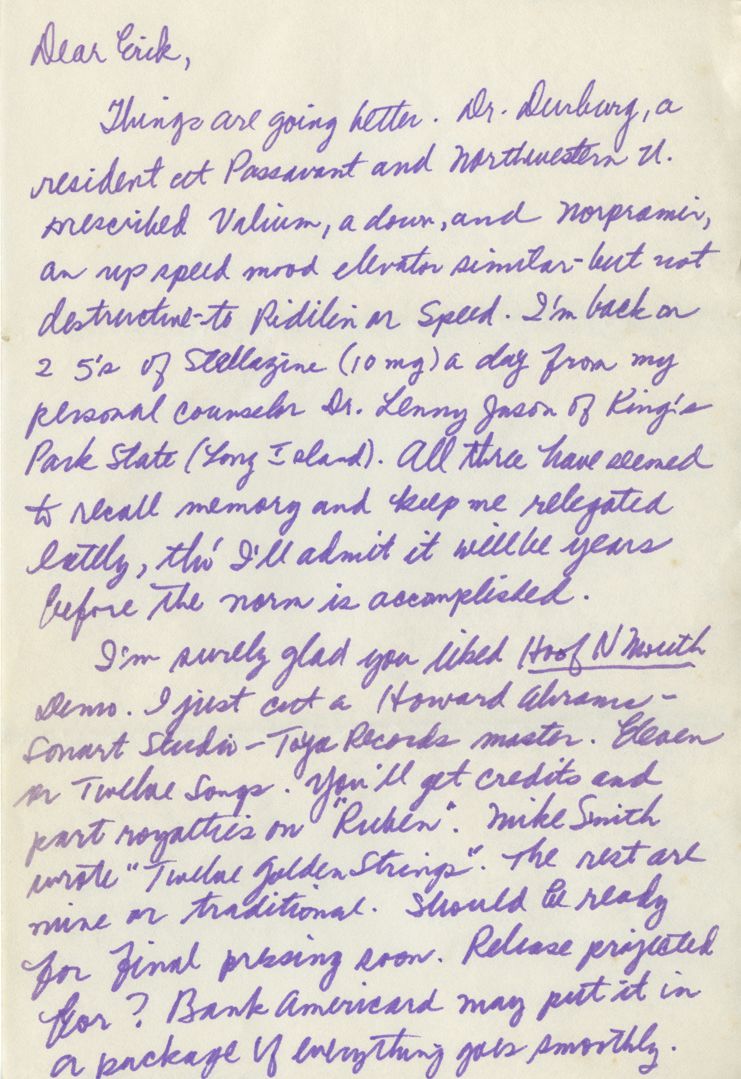 Dear Erik,
Things are going better. Dr. Durburg, a
resident at Passavant and Northwestern U.
prescribed Valium, a down, and Norpramin,
an up speed mood elevator similar-but not
destructive-to Ridilin or Speed. I'm back on
2 5's of Stellazine (10 mg) a day from my
personal counselor Dr. Lenny Jason of King's
Park State (Long Island). All three have seemed
to recall memory and keep me relegated
lately, tho' I'll admit it will be years
before the norm is accomplished.
I'm surely glad you liked Hoof N Mouth
Demo. I just cut a Howard Abrams-
Sonart Studio-Toya Records master. Eleven
or Twelve Songs. You'll get credits and
part royalties on "Ruben". Mike Smith
wrote "Twelve Golden Strings". The rest are
mine or traditional. Should be ready
for final pressing soon. Release projected
for? Bank Americard may put it in
a package if everything goes smoothly.